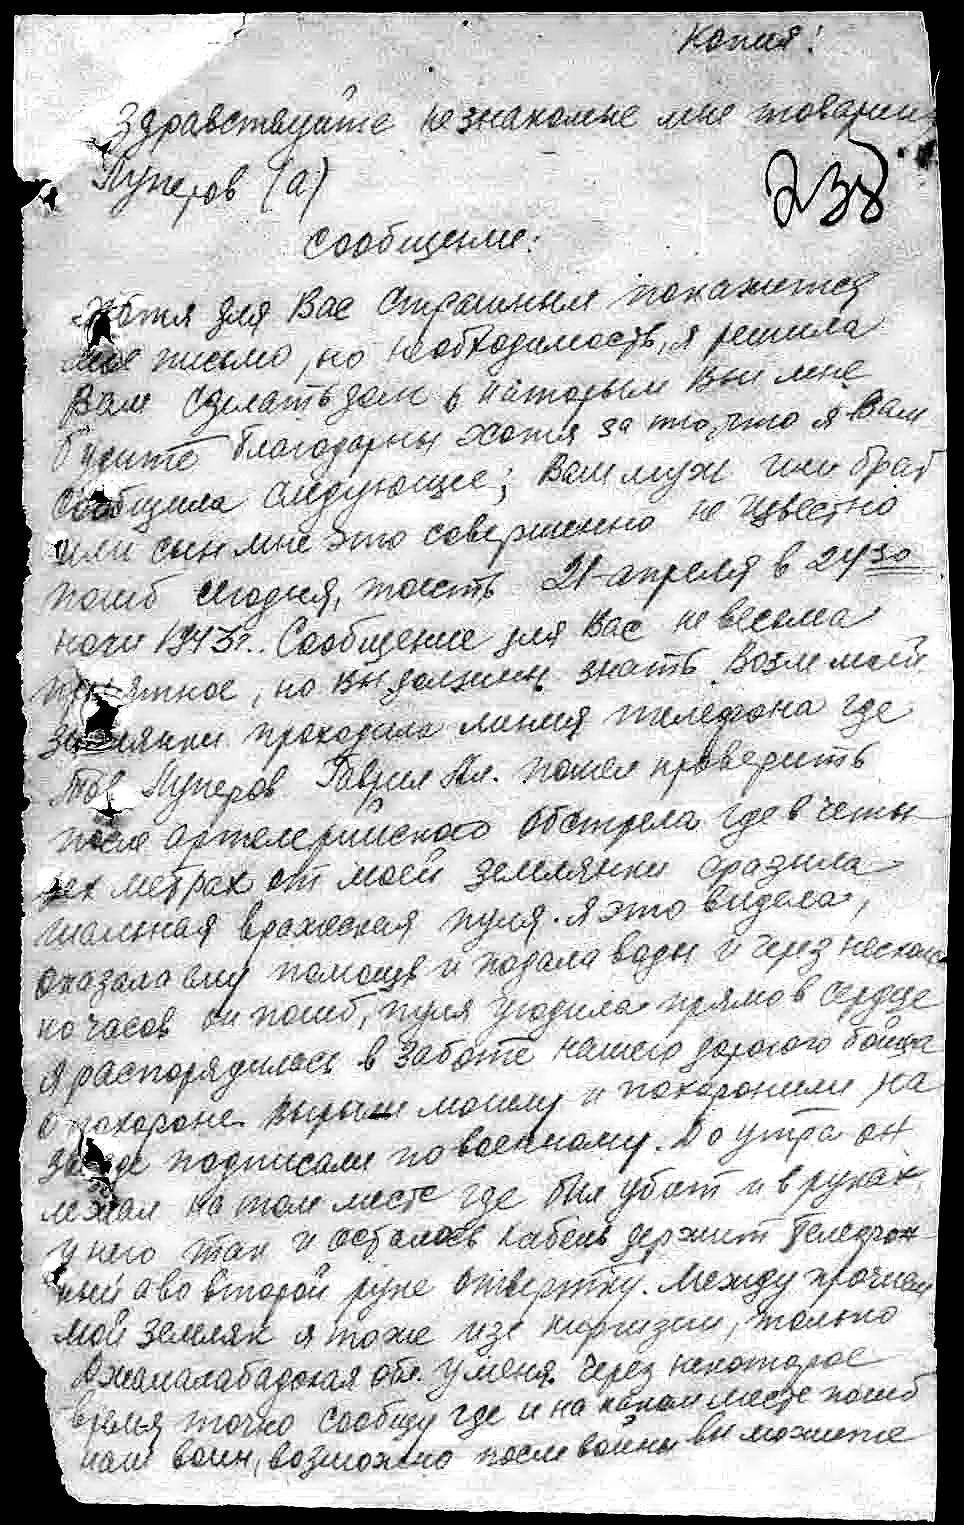 Копия!
Здравствуйте незнакомые мне товарищ
Луперов (а)
238
сообщение:
Хотя для Вас страшным покажится
мое письмо, но необходимость, я решила
Вам сделать долг в котором вы мне
будите благодарны хотя за то, что я Вам
сообщила следующее; Ваш муж или брат
или сын мне это совершенно не известно
погиб сегодня, тоесть 21-апреля в 24 30
ночи 1943г.. Сообщение для Вас не весьма
приятное, но вы должны знать. Возле моей
землянки проходила линия телефона где
тов Луперов Гаврил Ил. пошел проверить
после артелерийского обстрела где в четы
рех метрах от моей землянки сразила
шальная вражеская пуля. Я это видела,
оказала ему помощь и подала воды и через несколь
ко часов он погиб, пуля угодила прямо в сердце
я распорядилась в заботе нашего дорогого бойца
о похороне. Вырыли могилу и похоронили, на
звезде подписали по военному. До утра он
лежал на том месте где был убит и в руках
у него так и осталось кабель держит телефон
ный а во второй руке отвертку. Между прочим
мой земляк я тоже изс киргизии, только
Джалалабадская обл. у меня. Через некоторое
время точно сообщу где и на каком месте погиб
наш воин, возможно после войны вы можите